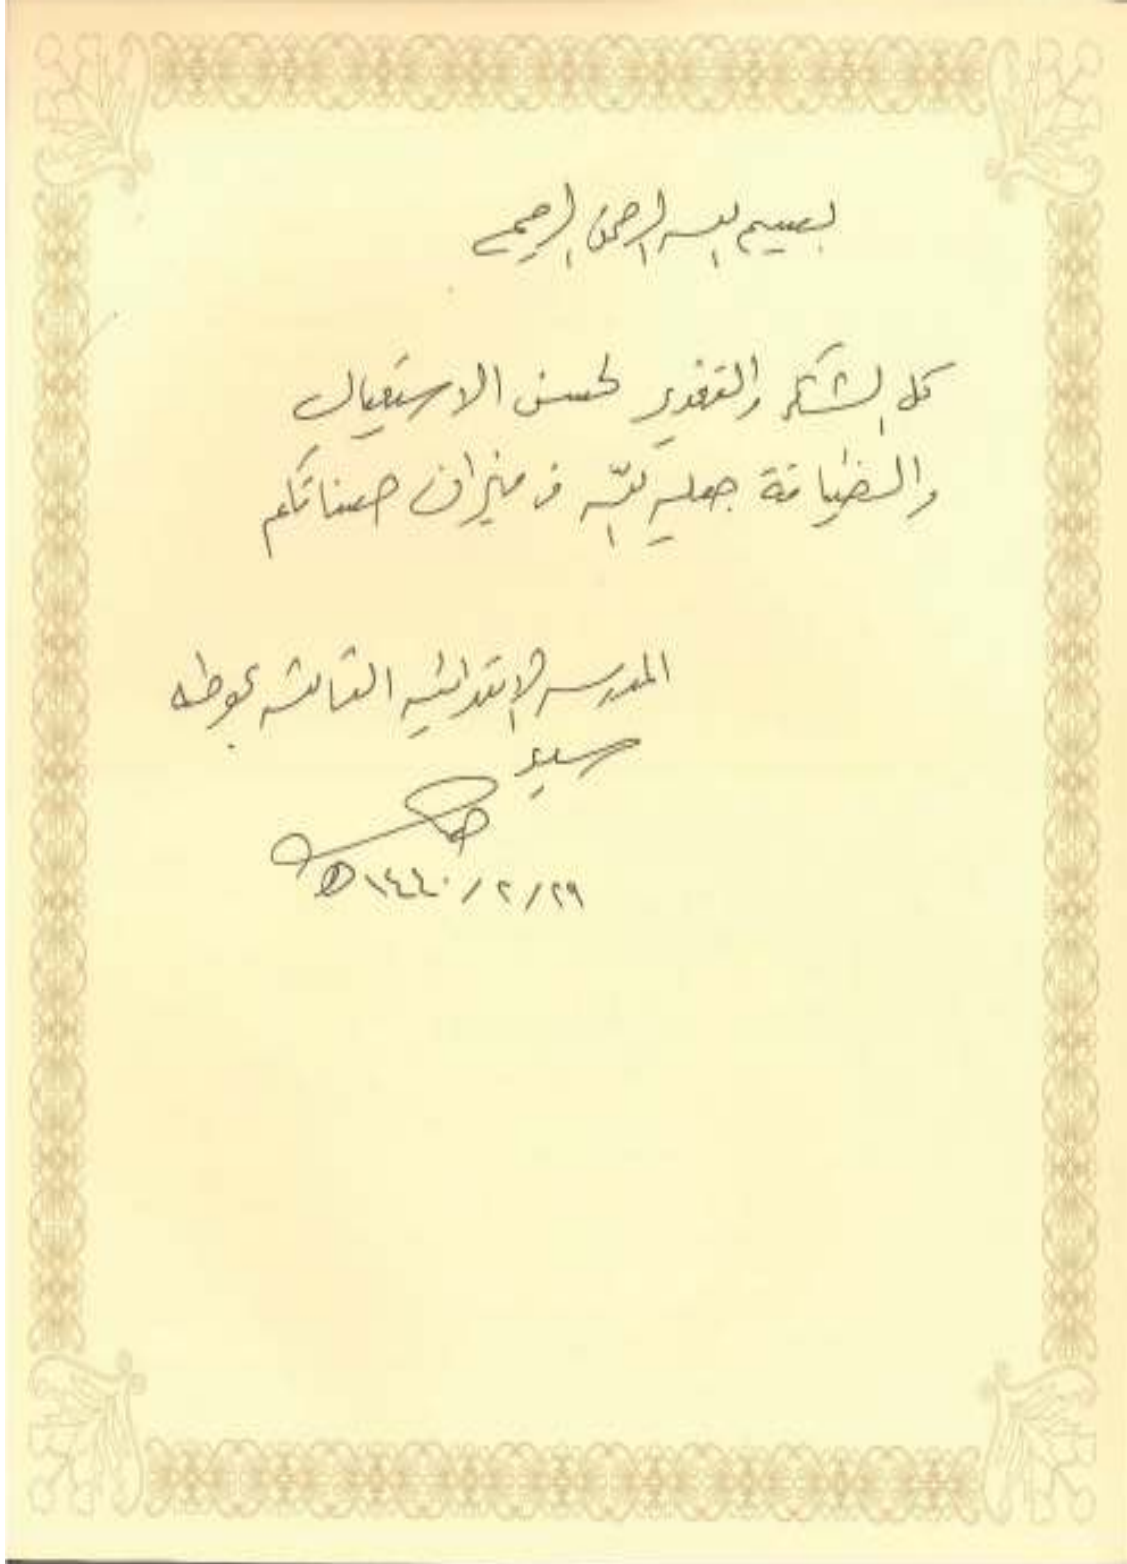 بسم الله الرحمن الرحيم
كل الشكر والتقدير لحسن الاستقبال
والضيافة جعله الله في ميزان حسناتكم
المدرسة الابتدائية الثالثة بحوطة
سدير
١٤٤٠/٢/٢٩هـ